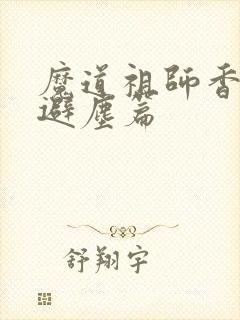 魔道祖師香
避塵篇
舒翔宇